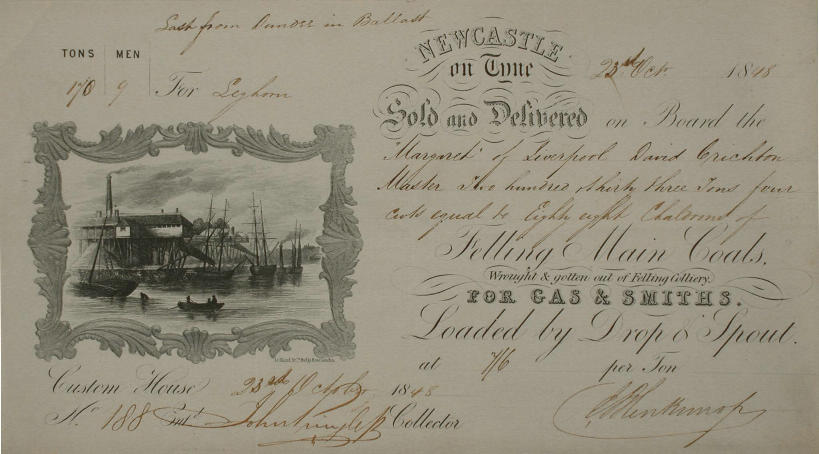 Last from Dundee in Ballast
TONS MEN
170 9 For Leghorn
NEWCASTLE
on Tyne
23rd Oct. 1848
Sold and Delivered on Board the
"Margaret" of Liverpool David Crichton
Master Two hundred & thirty three Tons four
cwts equal to Eighty eight Chaldrons of
Felling Main Coals.
Wrought & gotten out of Felling Colliery.
FOR GAS & SMITHS.
Loaded by Drop & Spout.
at 7/6 per Ton
Custom House 23rd October 1848
No. 188 John Collector